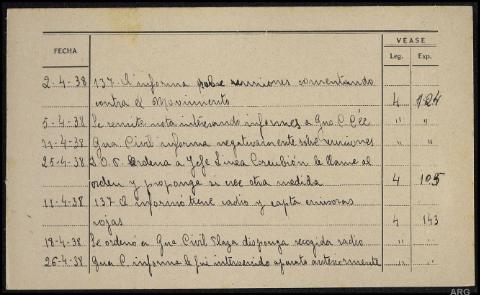 VÉASE
FECHA Leg. Exp.
2-4-38 137. A informa sobre reuniones comentando
contra el Movimiento 4 124
5-4-38 Se remite nota interesando informes a Gna. C. Cée " "
11-4-38 Gna. Civil informa negativamente sobre reuniones " "
25-4-38 S.O.S. ordena a Jefe Linea Corcubión le llame al
orden y proponga si cree otra medida 4 105
11-4-38 137. A informó tiene radio y capta emisoras
rojas 4 143
18-4-38 Se ordenó a Gna Civil Plaza disponga recogida radio " "
26-4-38 Gna C. informa le fué intervenido aparato anteriormente " "
ARG